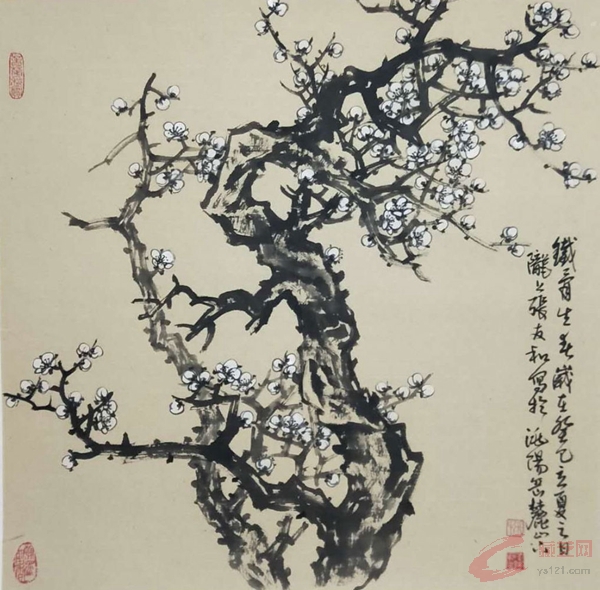 鐵骨生春歲在癸巳立夏之日
隴上張友和寫於洮陽岳麓山下
ya121.com